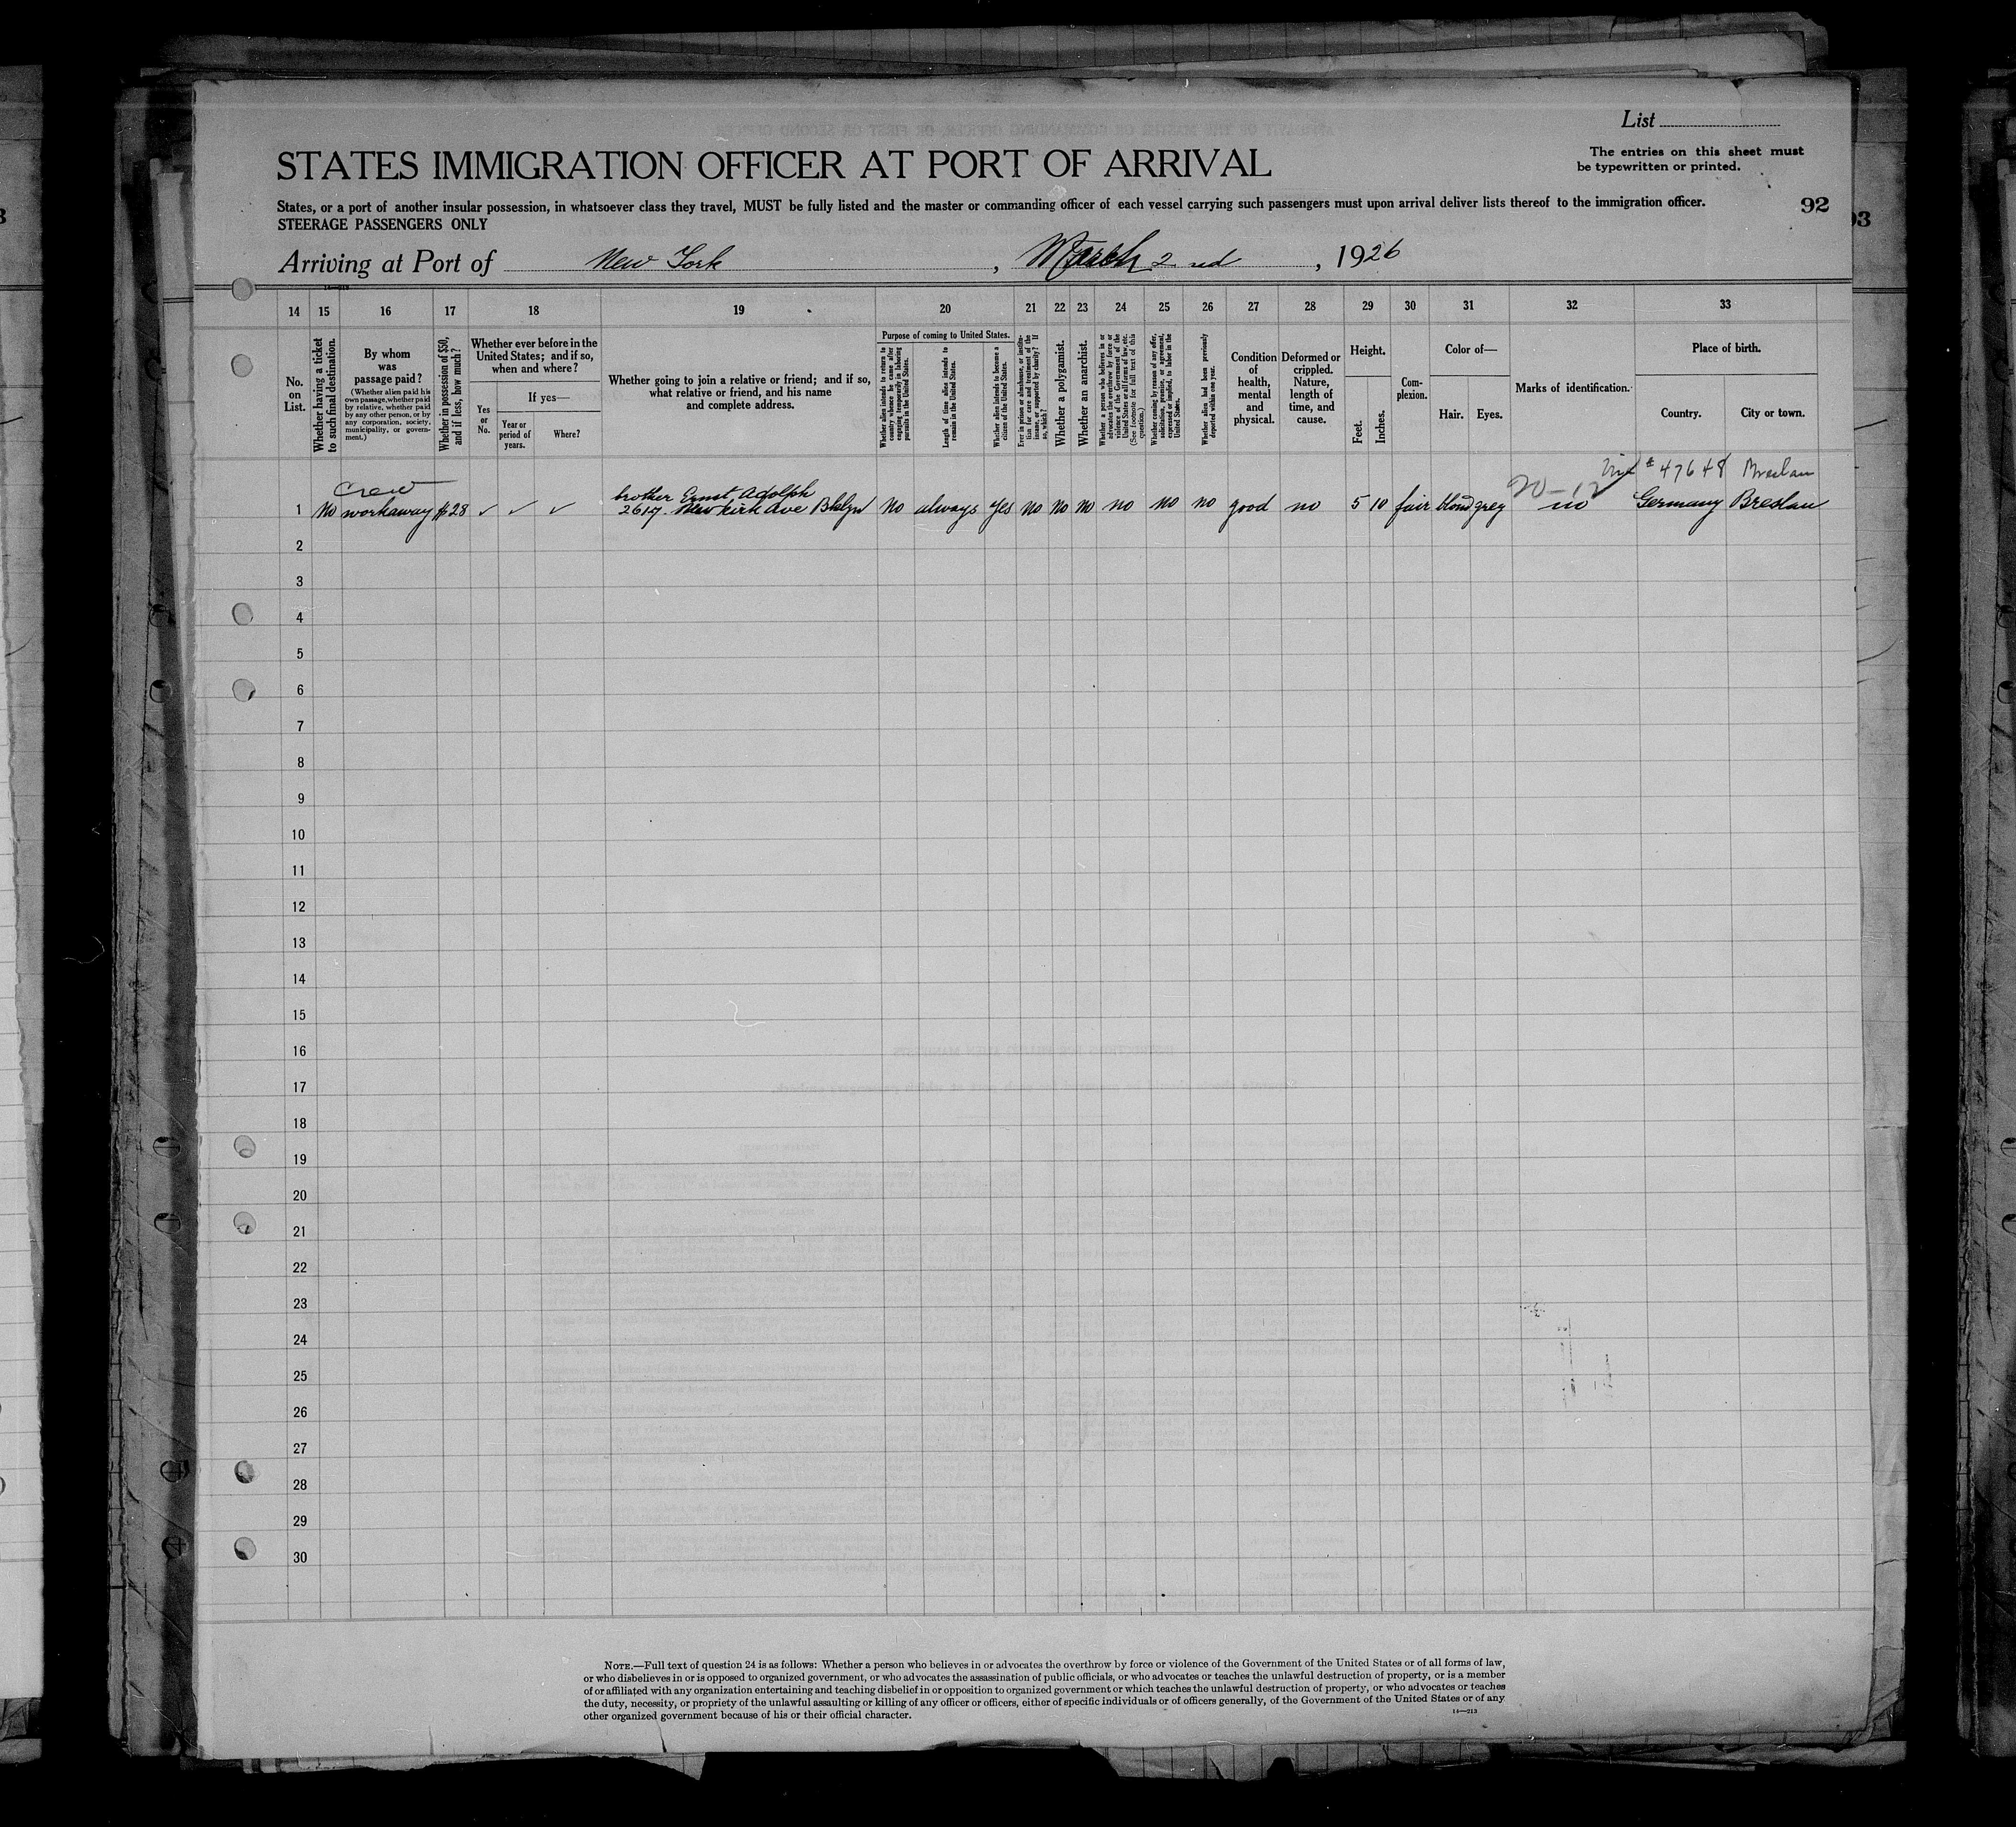 List
The entries on this sheet must
be typewritten or printed.
STATES IMMIGRATION OFFICER AT PORT OF ARRIVAL
States, or a port of another insular possession, in whatsoever class they travel, MUST be fully listed and the master or commanding officer of each vessel carrying such passengers must upon arrival deliver lists thereof to the immigration officer.
STEERAGE PASSENGERS ONLY
92
Arriving at Port of New York, March 2nd, 1926
14 15 16 17 18 19 20 21 22 23 24 25 26 27 28 29 30 31 32 33
No.
on
List.
Whether having a ticket
to such final destination.
By whom
was
passage paid?
(Whether alien paid his
own passage, whether paid
by relative, whether paid
by any other person, or by
any corporation, society,
municipality, or govern-
ment.)
Whether in possession of $50,
and if less, how much?
Whether ever before in the
United States; and if so,
when and where?
Yes
or
No.
If yes—
Year or
period of
years.
Where?
Whether going to join a relative or friend; and if so,
what relative or friend, and his name
and complete address.
Purpose of coming to United States.
Whether alien intends to return to
country whence he came after
engaging temporarily in laboring
pursuits in the United States.
Length of time alien intends to
remain in the United States.
Whether alien intends to become a
citizen of the United States.
Ever in prison or almshouse, or institu-
tion for care and treatment of the
insane, or supported by charity? If
so, which?
Whether a polygamist.
Whether an anarchist.
Whether a person who believes in or
advocates the overthrow by force or
violence of the Government of the
United States or all forms of law, etc.
(See footnote for full text of this
question.)
Whether coming by reason of any offer,
solicitation, promise, or agreement,
expressed or implied, to labor in the
United States.
Whether alien had been previously
deported within one year.
Condition
of
health,
mental
and
physical.
Deformed or
crippled.
Nature,
length of
time, and
cause.
Height.
Feet.
Inches.
Com-
plexion.
Color of—
Hair.
Eyes.
Marks of identification.
Place of birth.
Country.
City or town.
# 47648 Breslau
crew
brother Ernst Adolph
20-12
1 No workaway $28 ✓ ✓ ✓ 2617 Newkirk Ave Bklyn No always yes no no no no no no good no 5 10 fair blond grey no Germany Breslau
2
3
4
5
6
7
8
9
10
11
12
13
14
15
16
17
18
19
20
21
22
23
24
25
26
27
28
29
30
NOTE.—Full text of question 24 is as follows: Whether a person who believes in or advocates the overthrow by force or violence of the Government of the United States or of all forms of law,
or who disbelieves in or is opposed to organized government, or who advocates the assassination of public officials, or who advocates or teaches the unlawful destruction of property, or is a member
of or affiliated with any organization entertaining and teaching disbelief in or opposition to organized government or which teaches the unlawful destruction of property, or who advocates or teaches
the duty, necessity, or propriety of the unlawful assaulting or killing of any officer or officers, either of specific individuals or of officers generally, of the Government of the United States or of any
other organized government because of his or their official character.
14—213